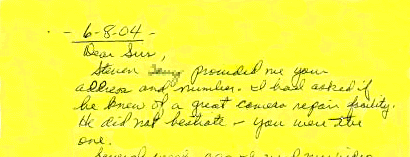 - 6-8-04 -
Dear Sir,
Steven provided me your
address and number. I had asked if
he knew of a great camera repair facility.
He did not hesitate - you were the
one.
Several years ago